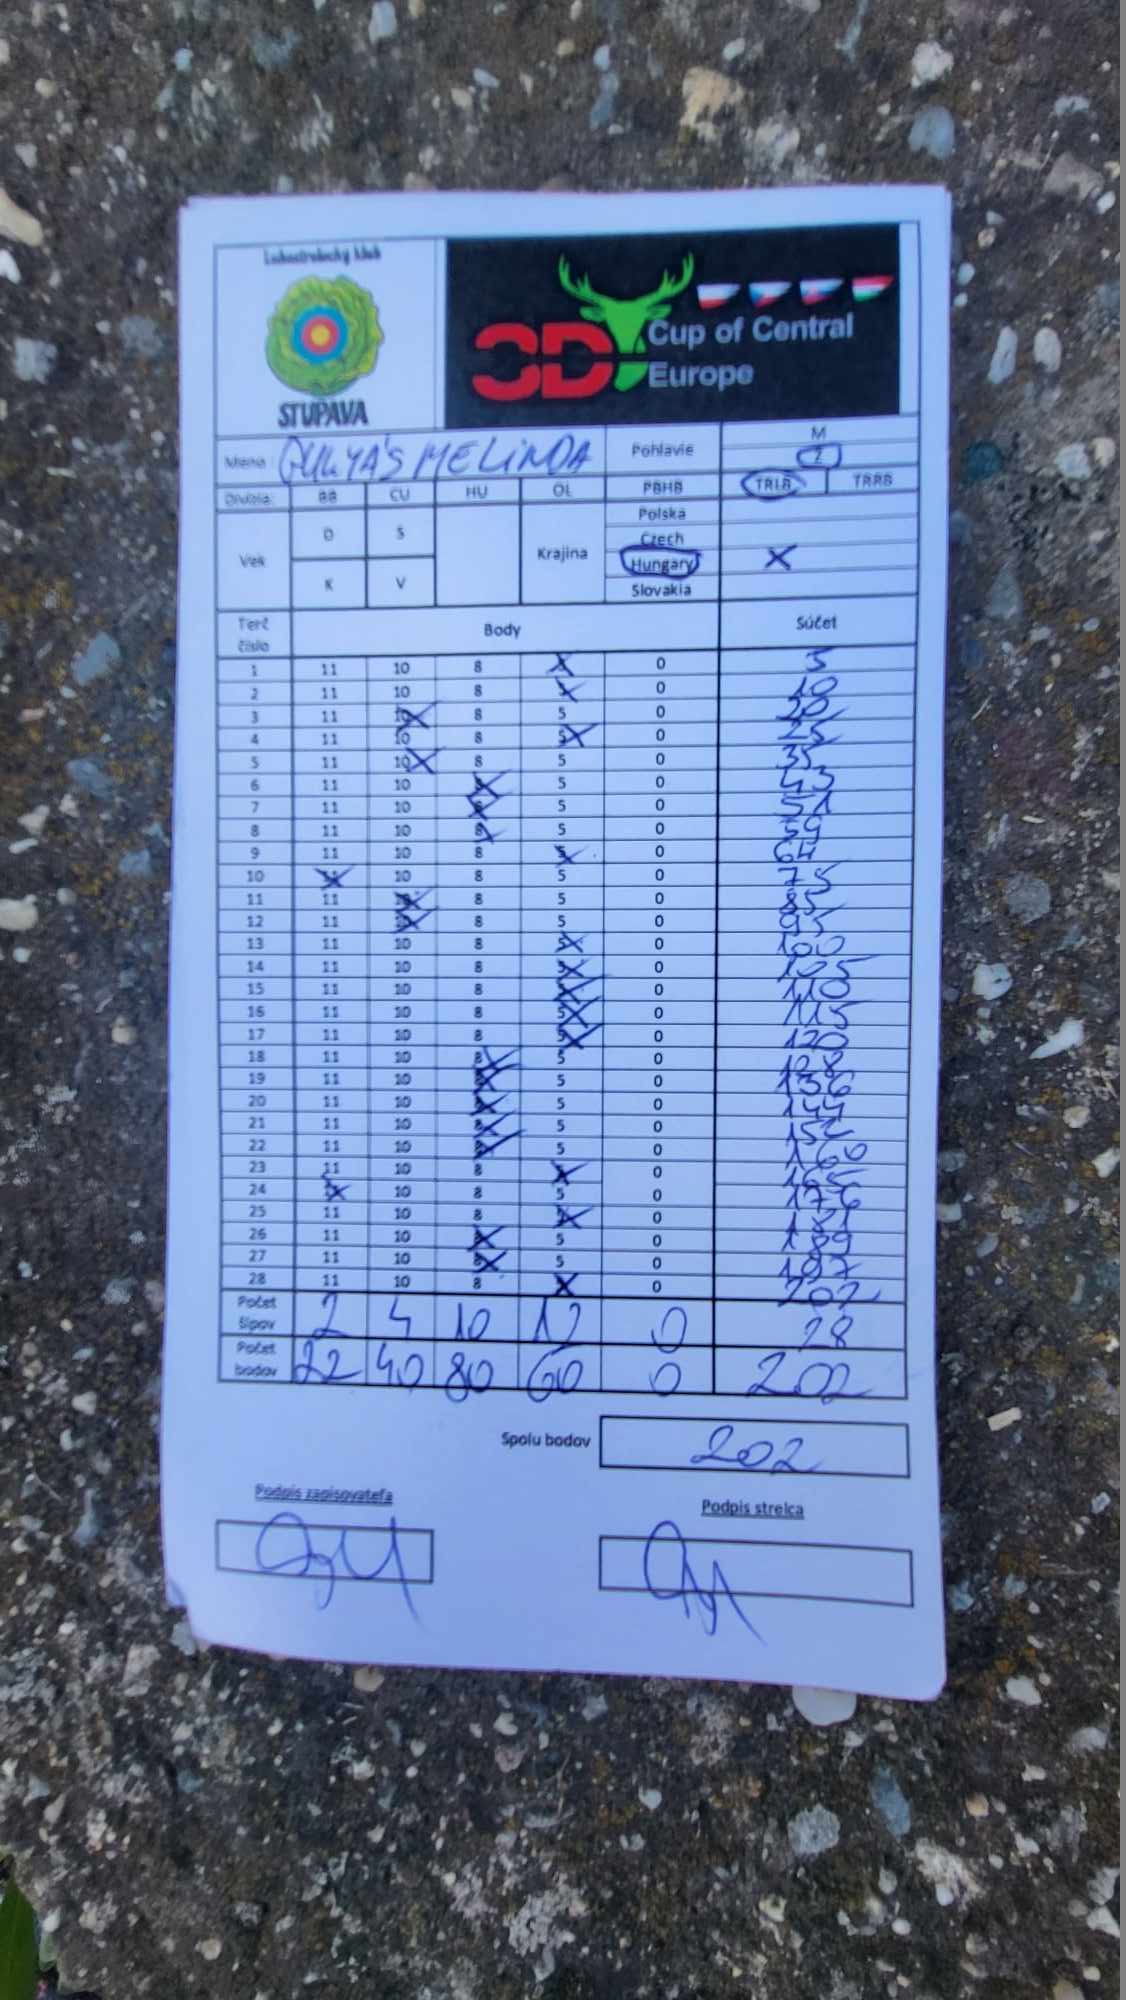 Lukostrelecký klub
STUPAVA
3D Cup of Central
Europe
Meno: GULYÁS MELINDA Pohlavie M
Ž
Divízia: BB CU HU OL PBHB TRLB TRRB
Vek D S Krajina Polska
Czech
K V Hungary X
Slovakia
Terč číslo Body Súčet
1 11 10 8 X 0 5
2 11 10 8 X 0 10
3 11 10 8 5 0 20
4 11 10 8 5 0 25
5 11 10 8 5 0 35
6 11 10 8 5 0 43
7 11 10 8 5 0 51
8 11 10 8 5 0 59
9 11 10 8 5 0 64
10 11 10 8 5 0 75
11 11 10 8 5 0 85
12 11 10 8 5 0 95
13 11 10 8 5 0 100
14 11 10 8 5 0 105
15 11 10 8 5 0 110
16 11 10 8 5 0 115
17 11 10 8 5 0 120
18 11 10 8 5 0 128
19 11 10 8 5 0 136
20 11 10 8 5 0 144
21 11 10 8 5 0 152
22 11 10 8 5 0 160
23 11 10 8 5 0 165
24 11 10 8 5 0 176
25 11 10 8 5 0 181
26 11 10 8 5 0 189
27 11 10 8 5 0 197
28 11 10 8 X 0 202
Počet šípov 2 4 10 12 0 28
Počet bodov 22 40 80 60 0 202
Spolu bodov 202
Podpis zapisovateľa Podpis strelca